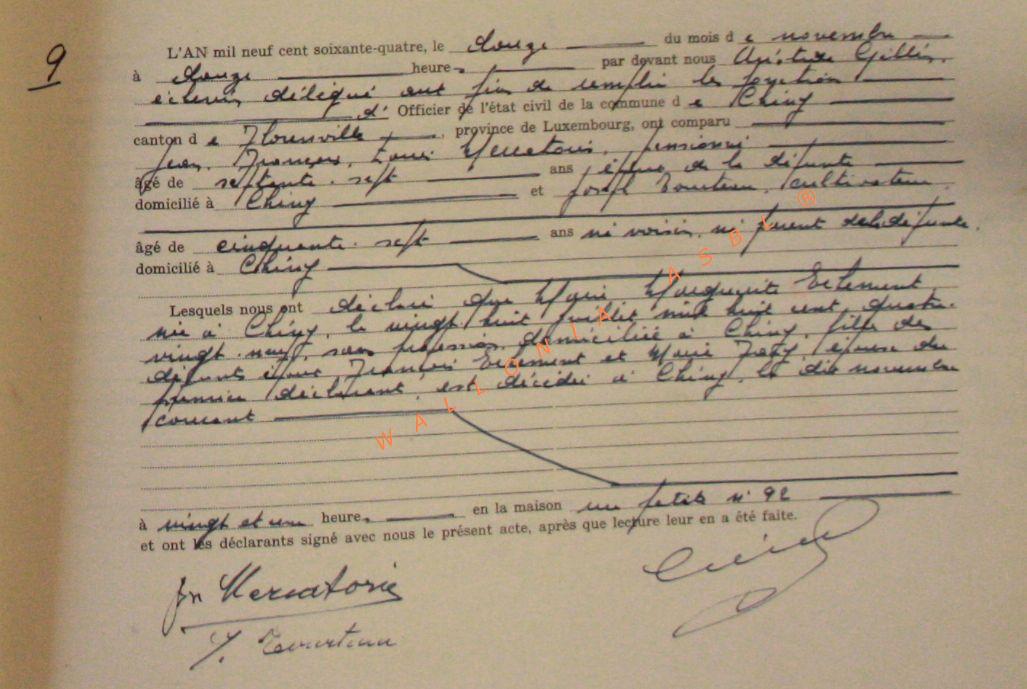 9
L'AN mil neuf cent soixante-quatre, le douze du mois d e novembre
à douze heures par devant nous Aristide Gillis,
échevin délégué aux fins de remplir les fonctions
d' Officier de l'état civil de la commune d e Chiny
canton d e Florenville, province de Luxembourg, ont comparu
Jean, François, Louis Mercatoris, pensionné
âgé de septante-sept ans époux de la défunte
domicilié à Chiny et Joseph Tourteau, cultivateur
âgé de cinquante-sept ans ni voisin, ni parent de la défunte.
domicilié à Chiny
Lesquels nous ont déclaré que Marie Marguerite
née à Chiny le vingt huit juillet mil huit cent quatre-
vingt-neuf, sans profession, domiciliée à Chiny, fille des
défunts époux François et Marie, épouse du
premier déclarant, est décédée à Chiny, le dix novembre
courant
à vingt et une heures, en la maison n° 92
et ont les déclarants signé avec nous le présent acte, après que lecture leur en a été faite.
Jn Mercatoris
J. Tourteau
WALLONIA ASBL ®